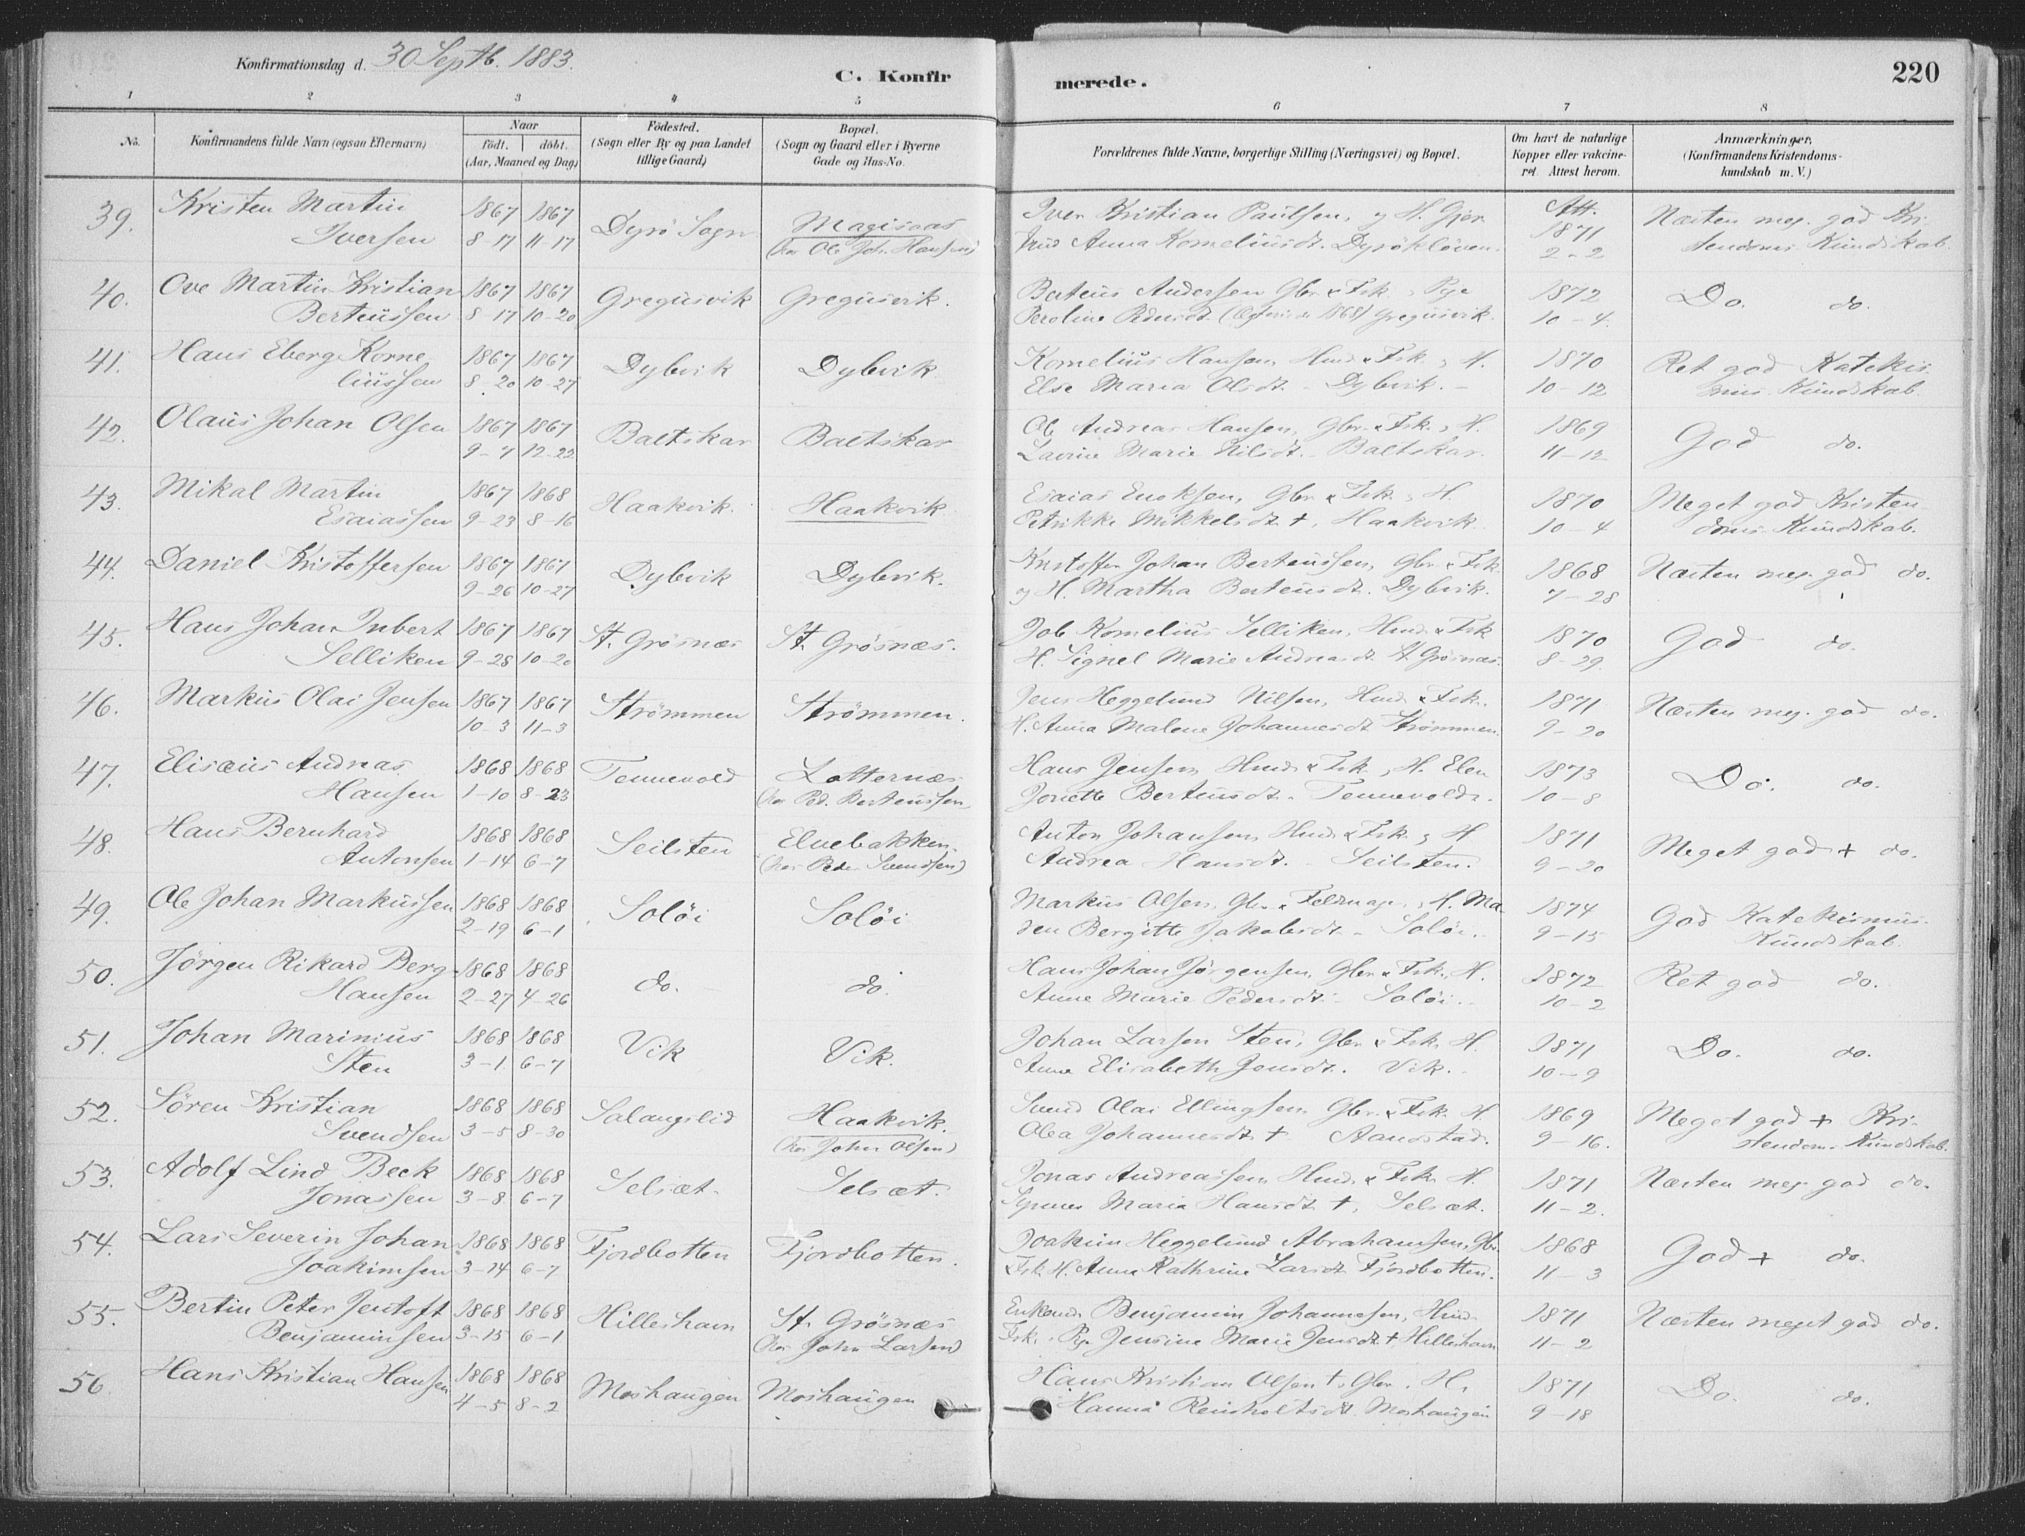 Konfirmationsdag d. 30 Septb. 1883.
C. Konfir
merede.
220
1 2 3 4 5 6 7 8
No.
Konfirmandens fulde Navn (ogsaa Efternavn)
Naar
födt. döbt.
(Aar, Maaned og Dag)
Födested.
(Sogn eller By og paa Landet
tillige Gaard)
Bopæl.
(Sogn og Gaard eller i Byerne
Gade og Hus-No.
Forældrenes fulde Navne, borgerlige Stilling (Næringsvei) og Bopæl.
Om havt de naturlige
Kopper eller vakcine-
ret. Attest herom.
Anmærkninger.
(Konfirmandens Kristendoms-
kundskab m. V.)
39. Kristen Martin 1867 1867 Dyrö Sogn Magisaas Iver Kristian Paulsen, Att. 1871 Næsten meg. god Kri-
Iversen 8-17 11-17 (hos Ole Joh. Hansen) Anna Korneliusdt. Dyröklöven 2-2 stendoms Kundskab
40. Ove Martin Kristian 1867 1867 Gregusvik Gregusvik. Berteus Andersen Gbr. & Fsk. 1872 Do. do.
Berteussen 8-17 10-20 Peroline Pedersdt. Gregusvik. 10-4.
41. Hans Eberg Korne 1867 1867 Dybvik Dybvik Kornelius Hansen, Hmd. & Fsk. H. 1870 Ret god Katekis
liussen 8-20 10-27 Else Maria Olsdt. Dybvik. 10-12 mus Kundskab
42. Olaus Johan Olsen 1867 1867 Baltskar Baltskar Ole Andreas Hansen, Gbr. & Fsk. H. 1869 God do.
9-7 12-22 Lavine Marie Nilsdt. Baltskar. 11-12
43. Mikal Martin 1867 1868 Haakvik. Haakvik Esaias Enoksen, Gbr. & Fsk. H. 1870 Meget god Kristen
Esaiassen 9-23 8-16 Petrikke Mikkelsdt. †, Haakvik 10-4 doms Kundskab.
44. Daniel Kristoffersen 1867 1867 Dybvik Dybvik. Kristoffer Johan Berteussen, Gbr. & Fsk. 1868 Næsten meg. god do.
9-26 10-27 og H. Martha Berteusdt. Dybvik. 7-28
45. Hans Johan Inbert 1867 1867 St. Grösnæs St. Grösnæs. Job Kornelius Selliken, Hmd. & Fsk 1870 God do.
Selliken 9-28 10-20 H. Signel Marie Andreasdt. St. Grösnæs. 8-29.
46. Markus Olai Jensen 1867 1867 Strömmen Strömmen. Jens Heggelund Nilsen, Hmd. & Fsk. 1871 Næsten meg. god do.
10-3 11-3 H. Anna Malene Johannesdt Strömmen 9-20
47. Elisæus Andreas 1868 1868 Tennevold Lotternæs Hans Jensen Hmd. & Fsk., H. Elen 1873 Do. do.
Hansen 1-10 8-23 (hos Ped. Berteussen Jonette Berteusdt. Tennevold. 10-8
48. Hans Bernhard 1868 1868 Seilsten Elvebakken. Anton Johansen, Hmd. & Fsk. H 1871 Meget god + do.
Antonsen 1-14 6-7 (hos Peder Svendsen) Andrea Hansdt. Seilsten. 9-20
49. Ole Johan Markussen 1868 1868 Solöi Solöi Markus Olsen, Gbr. & Feldmager, H. Ma- 1874 God Katekismus
2-19 6-1 ren Bergitte Jakobsdt. Solöi. 9-15 Kundskab.
50. Jörgen Rikard Berg 1868 1868 do. do. Hans Johan Jörgensen, Gbr. & Fsk., H. 1872 Ret god do.
Hansen 2-27 4-26 Anne Marie Pedersdt. Solöi. 10-2
51. Johan Marinius 1868 1868 Vik Vik. Johan Larsen Sten, Gbr. & Fsk. H. 1871 Do. do.
Sten 3-1. 6-7 Anne Elisabeth Jensdt. Vik. 10-9
52. Sören Kristian 1868 1868 Salangslid Haakvik. Svend Olai Ellingsen Gbr. & Fsk. H 1869 Meget god + Kri-
Svendsen 3-5 8-30 (hos John Olsen) Olea Johannesdt. † Aanstad. 9-16. stendom. Kundskab.
53. Adolf Lind Beck 1868 1868 Selsæt. Selsæt. Jonas Andreassen Hmd. & Fsk. H. 1871 Næsten meg. god do.
Jonassen 3-8 6-7 Maria Hansdt †, Selsæt. 11-2.
54. Lars Severin Johan 1868 1868 Fjordbotten Fjordbotten. Joakim Heggelund Abrahamsen, Gbr. 1868 God + do.
Joakimsen 3-14 6-7 & Fsk. H. Anne Kathrine Larsdt Fjordbotten. 11-3
55. Bertin Peter Jentoft 1868 1868 Hilleshavn St. Grösnæs Enkemd. Benjamin Johannesen, Hmd 1871 Næsten meget god do.
Benjaminsen 3-15 6-1 (hos John Larsen) Fsk. Jensine Marie Jensdt † Hilleshavn 11-2
56. Hans Kristian Hansen 1868 1868 Moshaugen Moshaugen Hans Kristian Olsen †, Gbr. H. 1871 Do. do.
4-5 8-2 Hanna Reinholtsdt. Moshaugen 9-18